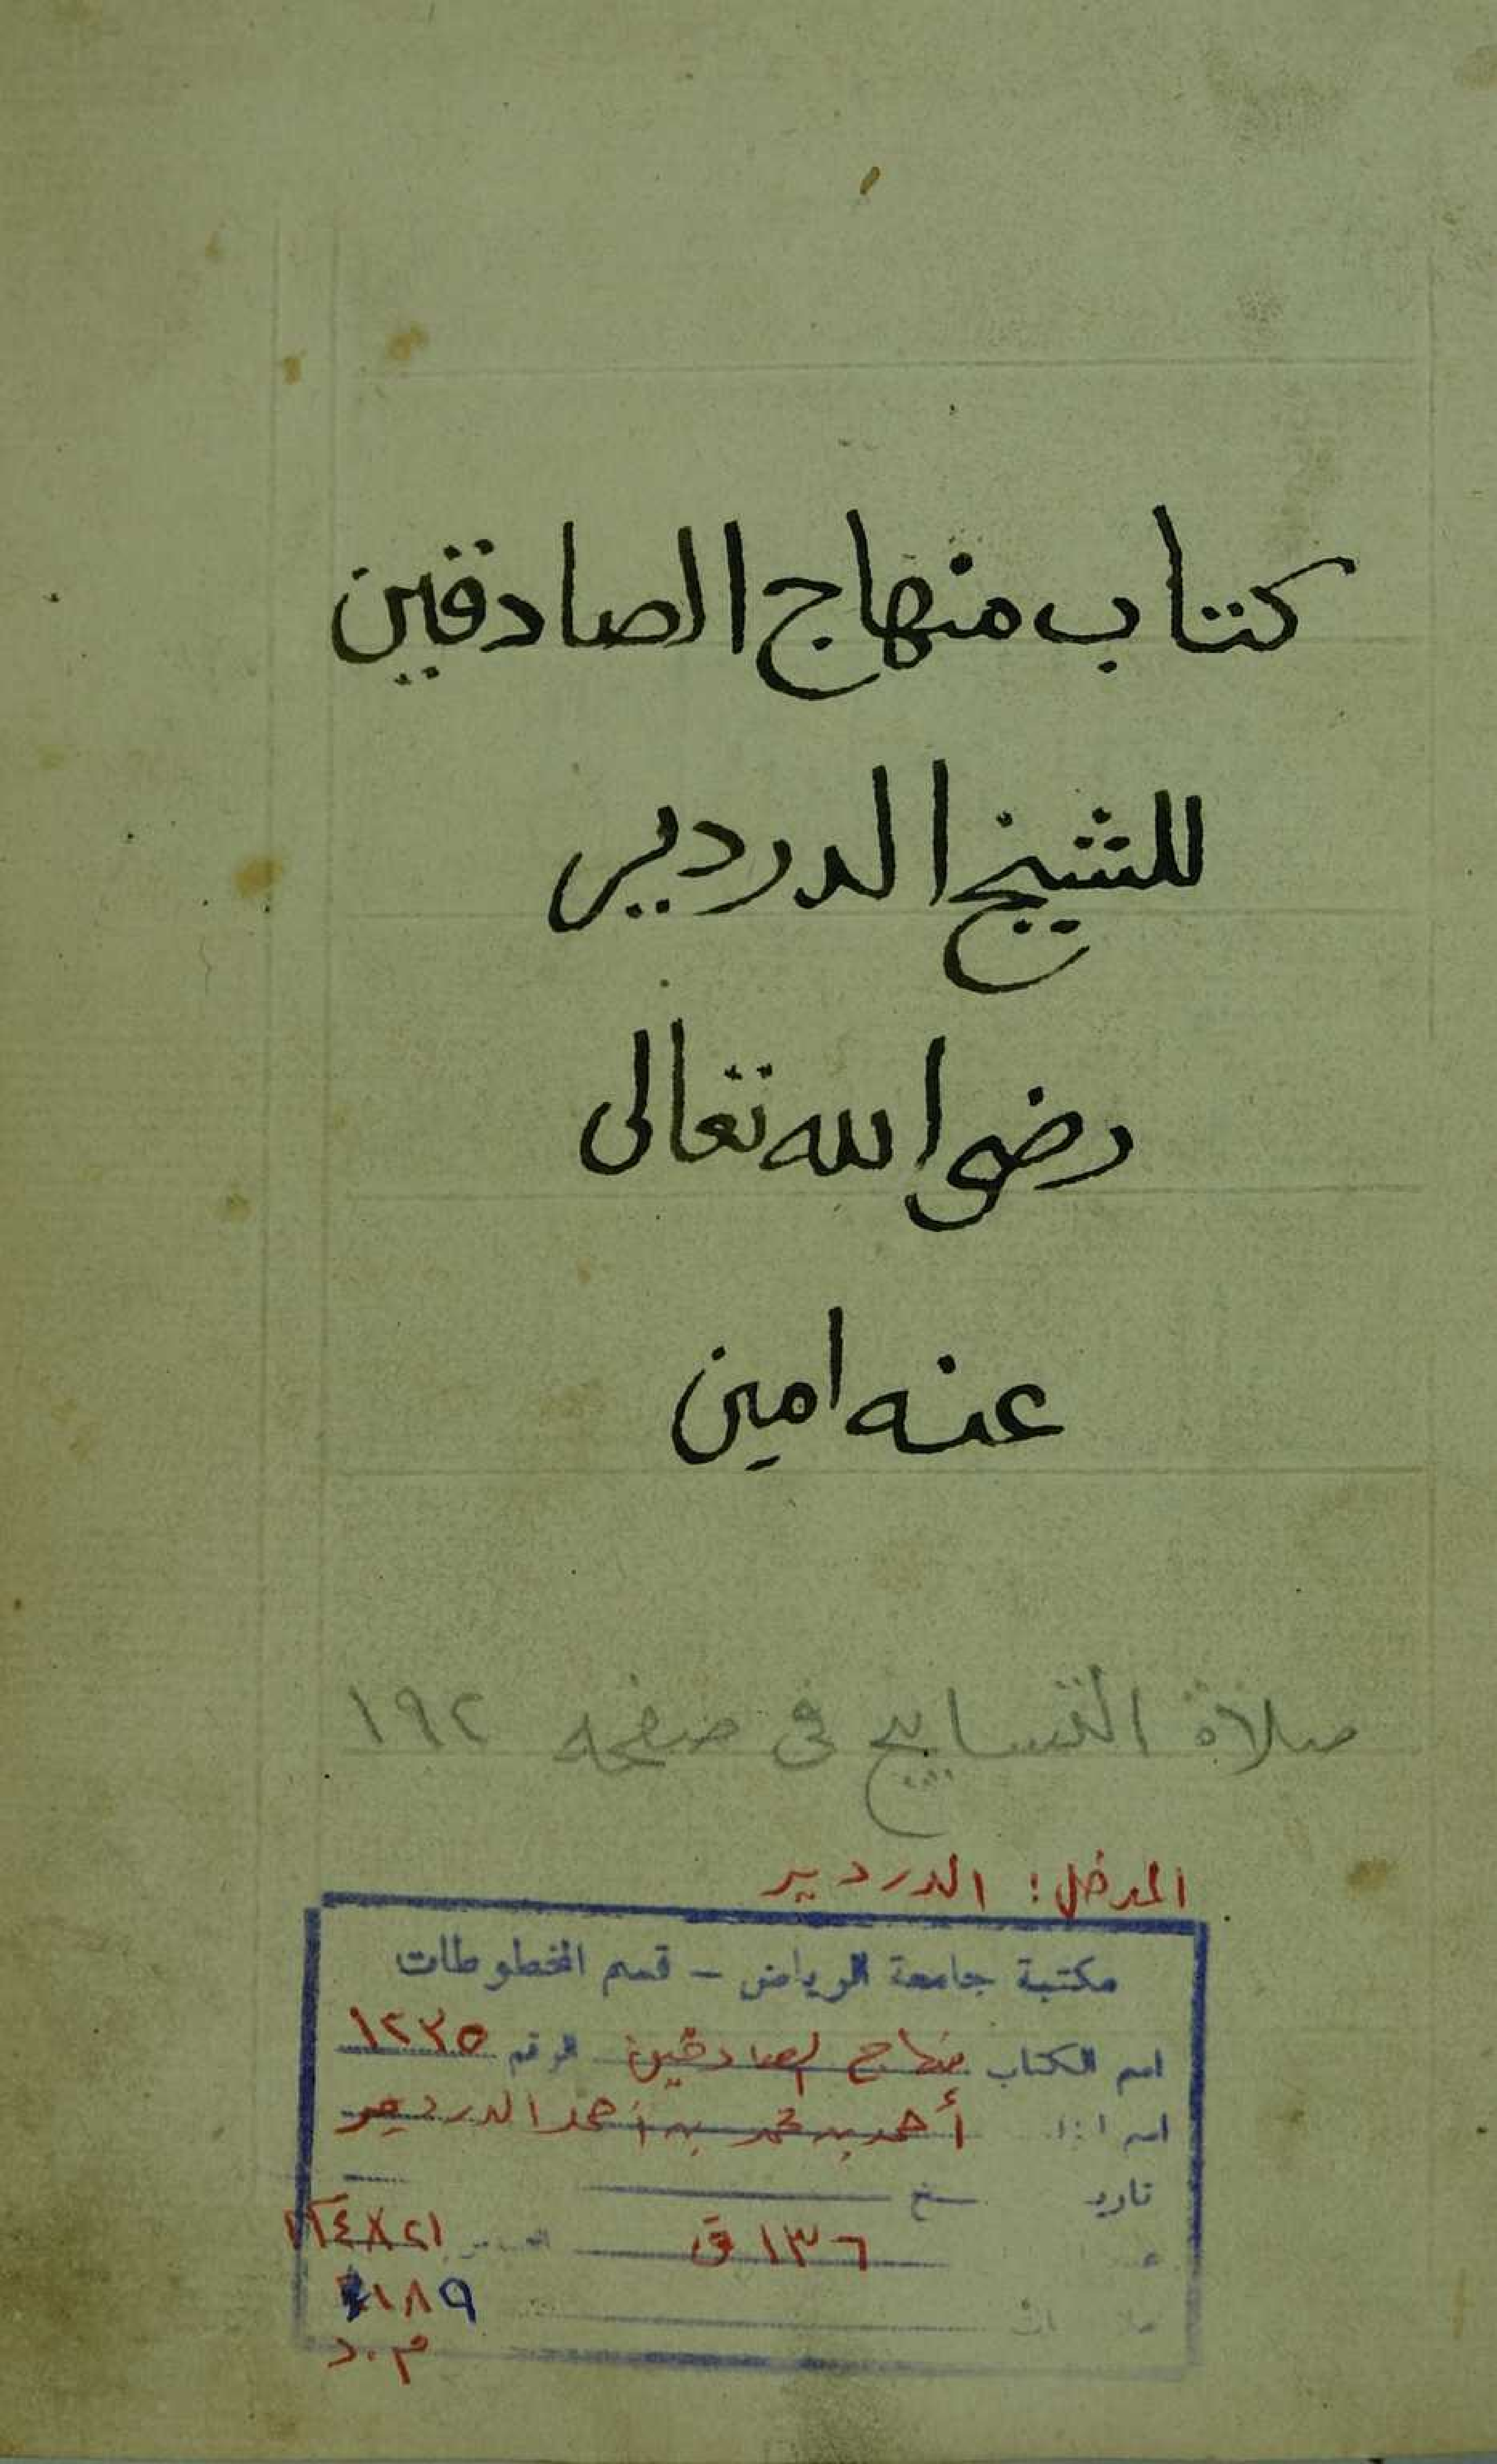 كتاب منهاج الصادقين
للشيخ الدردير
رضى الله تعالى
عنه امين
صلاة التسابيح فى صفحه ١٩٢
المدخل: الدردير
مكتبة جامعة الرياض - قسم المخطوطات
اسم الكتاب منهاج الصادقين الرقم ١٢٣٥
اسم أحمد بن محمد بن أحمد الدردير
تاريخ
١٣٦ ق
١٨٩
م.د